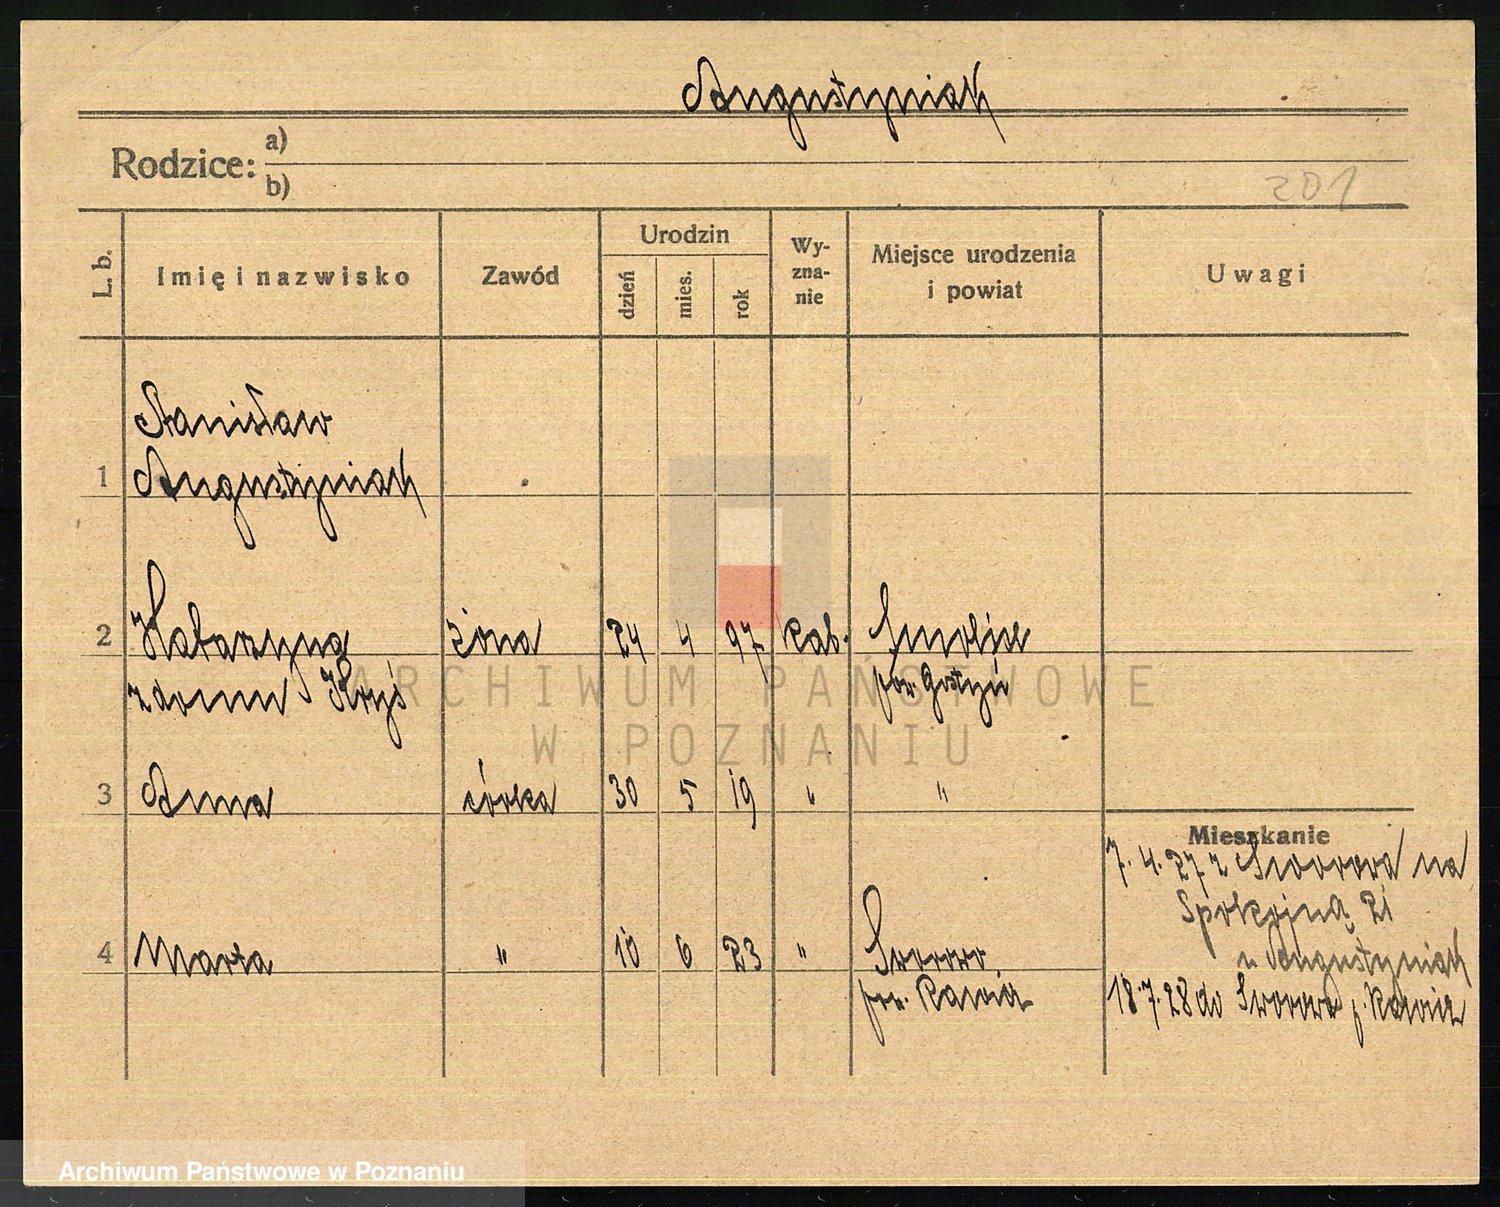 Augustyniak
Rodzice: a)
b)
201
L. b.
Imię i nazwisko
Zawód
Urodzin
dzień
mies.
rok
Wy-
zna-
nie
Miejsce urodzenia
i powiat
Uwagi
Stanisław
1 Augustyniak
2 Katarzyna żona 24 4 97 kat. Smolice
z domu Kryś pow. Gostyń
3 Anna córka 30 5 19 " "
Mieszkanie
7.4.27 z Sworowa na
Spokojną 21
u Augustyniak
4 Marta " 10 6 23 " Sworowo
pow. Rawicz
18.7.28 do Sworowa p. Rawicz
ARCHIWUM PAŃSTWOWE
W POZNANIU
Archiwum Państwowe w Poznaniu